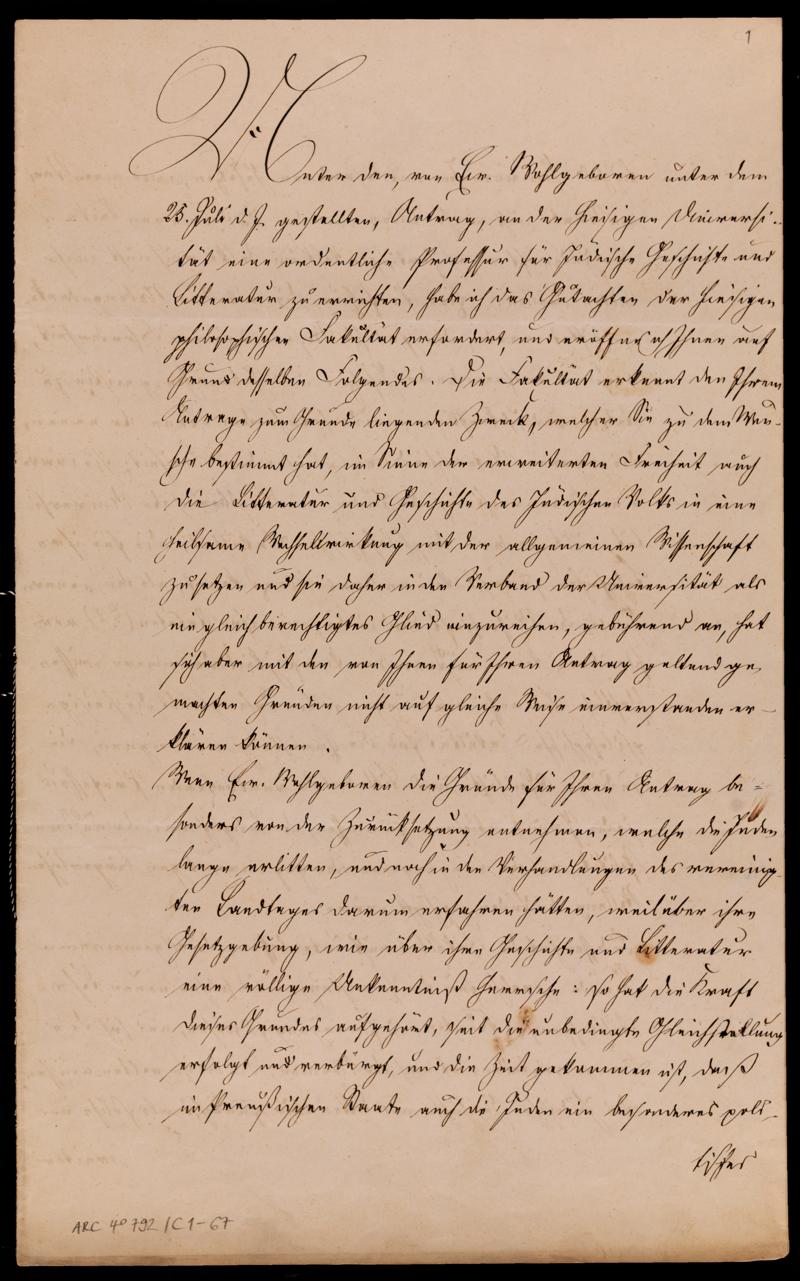 1
Unter den, von Ew. Wohlgeboren unter dem
25. Juli d. J. gestellten, Antrag, an der hiesigen Universi-
tät eine ordentliche Professur für Jüdische Geschichte und
Litteratur zu errichten, habe ich das Gutachten der hiesigen
philosophischen Fakultät erfordert, und eröffne ich Ihnen auf
Grund desselben Folgendes. Die Fakultät erkennt den Ihrem
Antrage zum Grunde liegenden Zweck, welcher Sie zu dem Wun-
sche bestimmt hat, im Sinne der erweiterten Freiheit auch
die Litteratur und Geschichte des Jüdischen Volks in eine
heilsame Wechselwirkung mit der allgemeinen Wissenschaft
zu setzen und sie daher in den Verband der Universität als
ein gleich berechtigtes Glied einzureihen, gebührend an, hat
sich aber mit den von Ihnen für Ihren Antrag geltend ge-
machten Gründen nicht auf gleiche Weise einverstanden er-
klären können.
Wenn Ew. Wohlgeboren die Gründe für Ihren Antrag be-
sonders von der Zurücksetzung entnehmen, welche die Juden
lange erlitten, und noch in den Verhandlungen des vereinig-
ten Landtages darum erfahren hätten, weil über ihre
Gesetzgebung, wie über ihre Geschichte und Litteratur
eine völlige Unkenntniß herrsche: so hat die Kraft
dieses Grundes aufgehört, seit die unbedingte Gleichstellung
erfolgt und verbürgt, und die Zeit gekommen ist, daß
im Preußischen Staate auch die Juden ein besonderes poli-
tisches
ARC 4° 792 / C 1-67